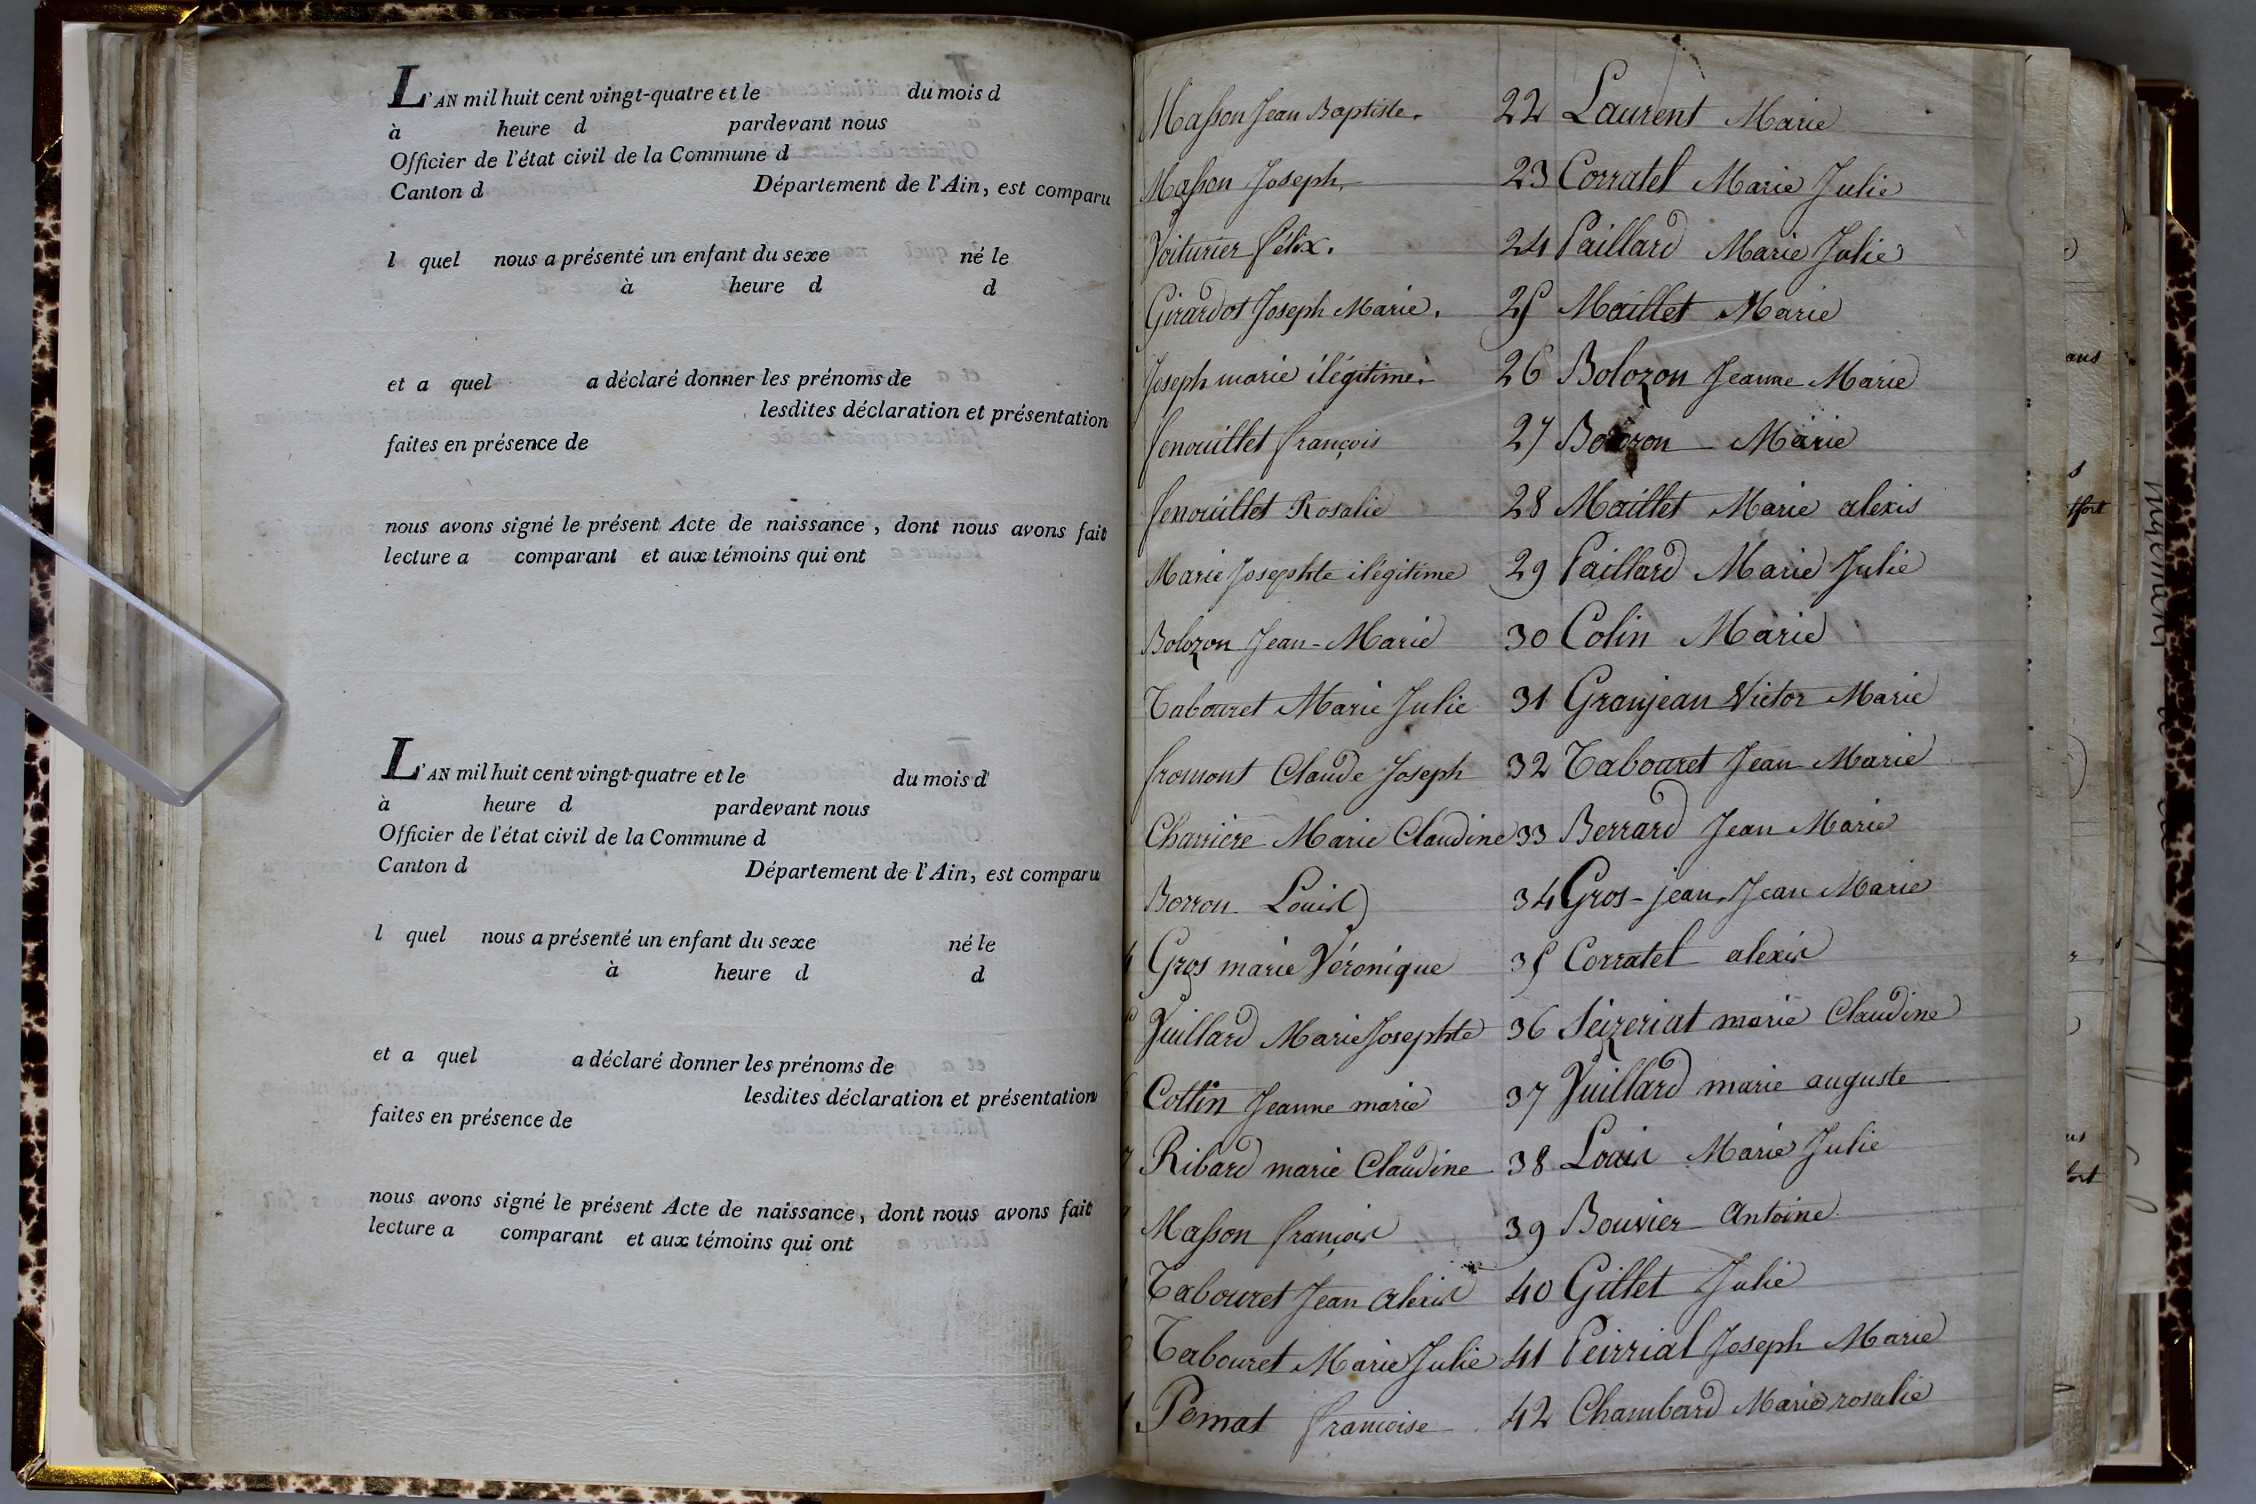 L'AN mil huit cent vingt-quatre et le du mois d
à heure d pardevant nous
Officier de l'état civil de la Commune d
Canton d Département de l'Ain, est comparu
l quel nous a présenté un enfant du sexe né le
à heure d d
et a quel a déclaré donner les prénoms de
lesdites déclaration et présentation
faites en présence de
nous avons signé le présent Acte de naissance, dont nous avons fait
lecture a comparant et aux témoins qui ont
L'AN mil huit cent vingt-quatre et le du mois d
à heure d pardevant nous
Officier de l'état civil de la Commune d
Canton d Département de l'Ain, est comparu
l quel nous a présenté un enfant du sexe né le
à heure d d
et a quel a déclaré donner les prénoms de
lesdites déclaration et présentation
faites en présence de
nous avons signé le présent Acte de naissance, dont nous avons fait
lecture a comparant et aux témoins qui ont
Masson Jean Baptiste. 22 Laurent Marie
Masson Joseph. 23 Corratel Marie Julie
Voiturier félix. 24 Paillard Marie Julie
Girardot Joseph Marie. 25 Maillet Marie
Joseph marie ilégitime. 26 Bolozon Jeanne Marie
fenouillet françois 27 Bolozon Marie
fenouillet Rosalie 28 Maillet Marie alexis
Marie Josephte ilégitime 29 Paillard Marie Julie
Bolozon Jean-Marie 30 Colin Marie
Tabouret Marie Julie 31 Granjean Victor Marie
fromont Claude Joseph 32 Tabouret Jean Marie
Charrière Marie Claudine 33 Berrard Jean Marie
Borron Louis 34 Gros-jean Jean Marie
Gros marie Véronique 35 Corratel alexis
Vuillard Marie Josephte 36 Seizeriat marie Claudine
Cottin Jeanne marie 37 Vuillard marie auguste
Ribard marie Claudine 38 Louis Marie Julie
Masson françois 39 Bouvier Antoine
Tabouret Jean Alexis 40 Gillet Julie
Tabouret Marie Julie 41 Peirrial Joseph Marie
Pernat francoise 42 Chambard Marie rosalie